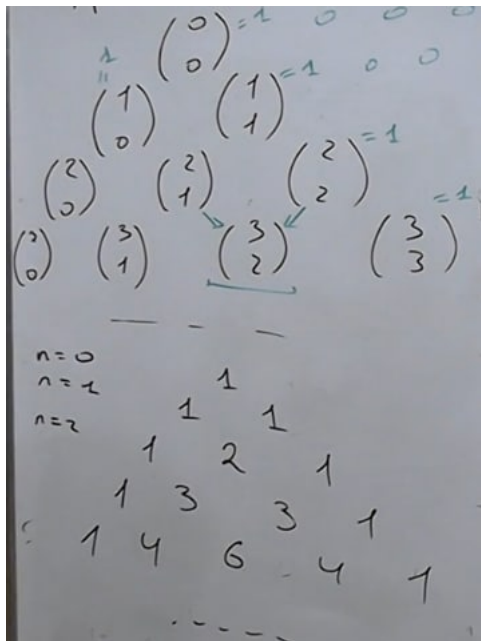 (0 0) = 1 0 0 0
1 = (1 0) (1 1) = 1 0 0
(2 0) (2 1) (2 2) = 1
(3 0) (3 1) (3 2) (3 3) = 1
n=0
1
n=1
1 1
n=2
1 2 1
1 3 3 1
1 4 6 4 1